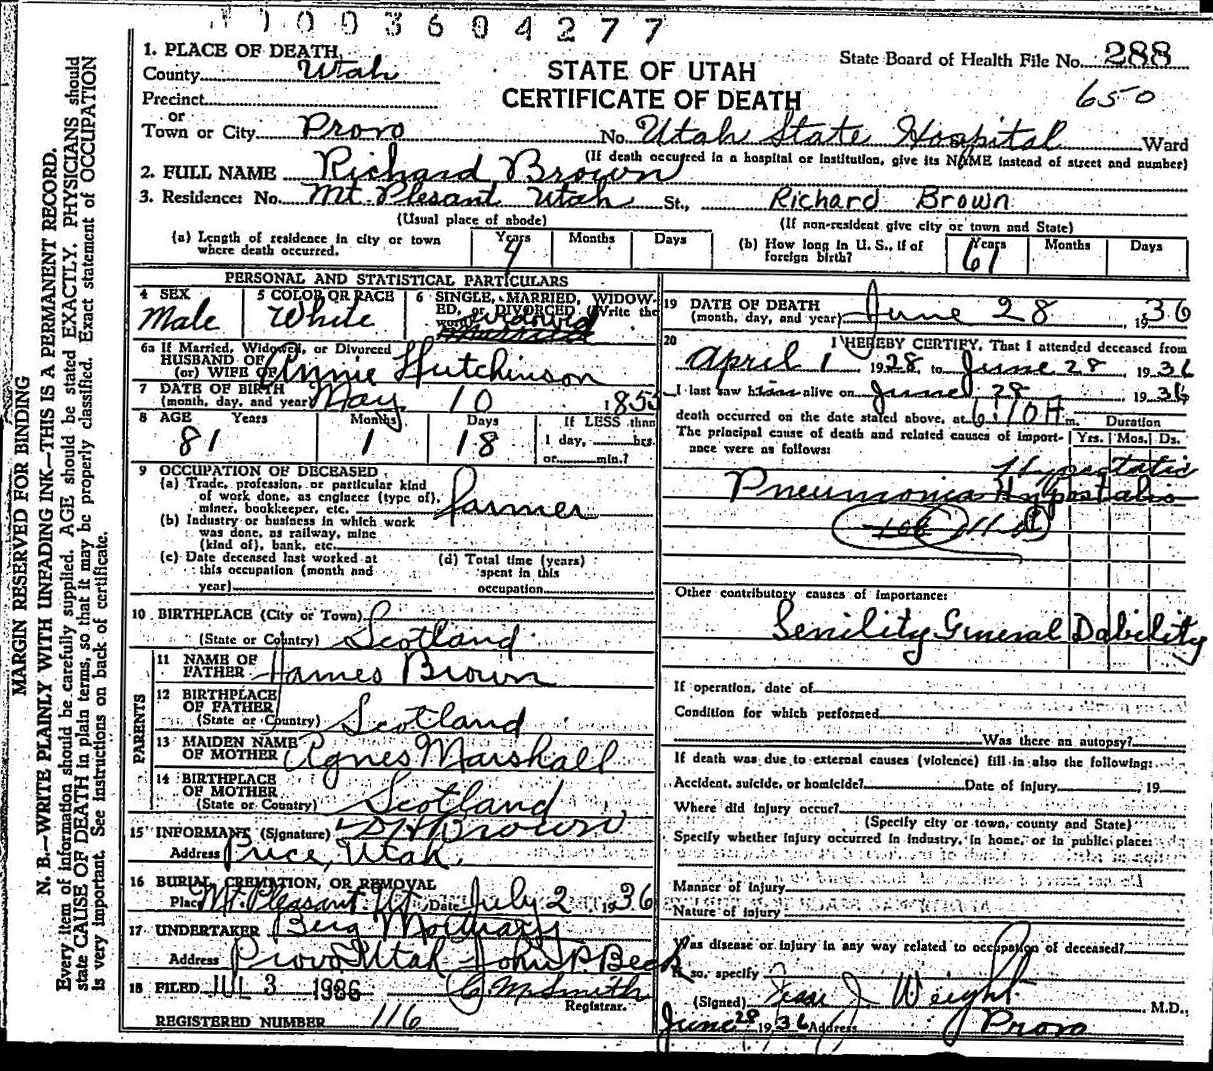 N 1 0 0 3 6 0 4 2 7 7
1. PLACE OF DEATH
County Utah
STATE OF UTAH
State Board of Health File No. 288
Precinct
CERTIFICATE OF DEATH
650
or
Town or City Provo No. Utah State Hospital Ward
(If death occurred in a hospital or institution, give its NAME instead of street and number)
2. FULL NAME Richard Brown
3. Residence: No. Mt. Plesant Utah St., Richard Brown
(Usual place of abode) (If non-resident give city or town and State)
(a) Length of residence in city or town where death occurred. Years 4 Months Days
(b) How long in U. S., if of foreign birth? Years 61 Months Days
PERSONAL AND STATISTICAL PARTICULARS
4 SEX Male
5 COLOR OR RACE White
6 SINGLE, MARRIED, WIDOWED, or DIVORCED (Write the word) Widowed
6a If Married, Widowed, or Divorced
HUSBAND OF
(or) WIFE OF Annie Hutchinson
7 DATE OF BIRTH
(month, day, and year) May 10 1855
8 AGE Years 81 Months 1 Days 18 If LESS than 1 day, hrs. or min.?
9 OCCUPATION OF DECEASED
(a) Trade, profession, or particular kind of work done, as engineer (type of), miner, bookkeeper, etc. farmer
(b) Industry or business in which work was done, as railway, mine (kind of), bank, etc.
(c) Date deceased last worked at this occupation (month and year)
(d) Total time (years) spent in this occupation
10 BIRTHPLACE (City or Town)
(State or Country) Scotland
PARENTS
11 NAME OF FATHER James Brown
12 BIRTHPLACE OF FATHER
(State or Country) Scotland
13 MAIDEN NAME OF MOTHER Agnes Marshall
14 BIRTHPLACE OF MOTHER
(State or Country) Scotland
15 INFORMANT (Signature) Brown
Address Price, Utah
16 BURIAL, CREMATION, OR REMOVAL
Place Mt. Pleasant Ut Date July 2 1936
17 UNDERTAKER Berg Mortuary
Address Provo Utah John P. Beck
18 FILED JUL 3 1936 Smith
Registrar.
REGISTERED NUMBER 116
19 DATE OF DEATH
(month, day, and year) June 28 1936
20 I HEREBY CERTIFY, That I attended deceased from
April 1 1928, to June 28, 1936
I last saw him alive on June 28 1936
death occurred on the date stated above, at 6:10 A m.
Duration
The principal cause of death and related causes of importance were as follows: Yrs. Mos. Ds.
Hypostatic
Pneumonia Hypostatic
Other contributory causes of importance:
Senility General Dability
If operation, date of
Condition for which performed
Was there an autopsy?
If death was due to external causes (violence) fill in also the following:
Accident, suicide, or homicide? Date of injury 19
Where did injury occur?
(Specify city or town, county and State)
Specify whether injury occurred in industry, in home, or in public place:
Manner of injury
Nature of injury
Was disease or injury in any way related to occupation of deceased?
If so, specify
(Signed) J Weight M.D.
June 28 1936 Address Provo
MARGIN RESERVED FOR BINDING
N. B.—WRITE PLAINLY WITH UNFADING INK—THIS IS A PERMANENT RECORD.
Every item of information should be carefully supplied. AGE should be stated EXACTLY. PHYSICIANS should
state CAUSE OF DEATH in plain terms, so that it may be properly classified. Exact statement of OCCUPATION
is very important. See instructions on back of certificate.